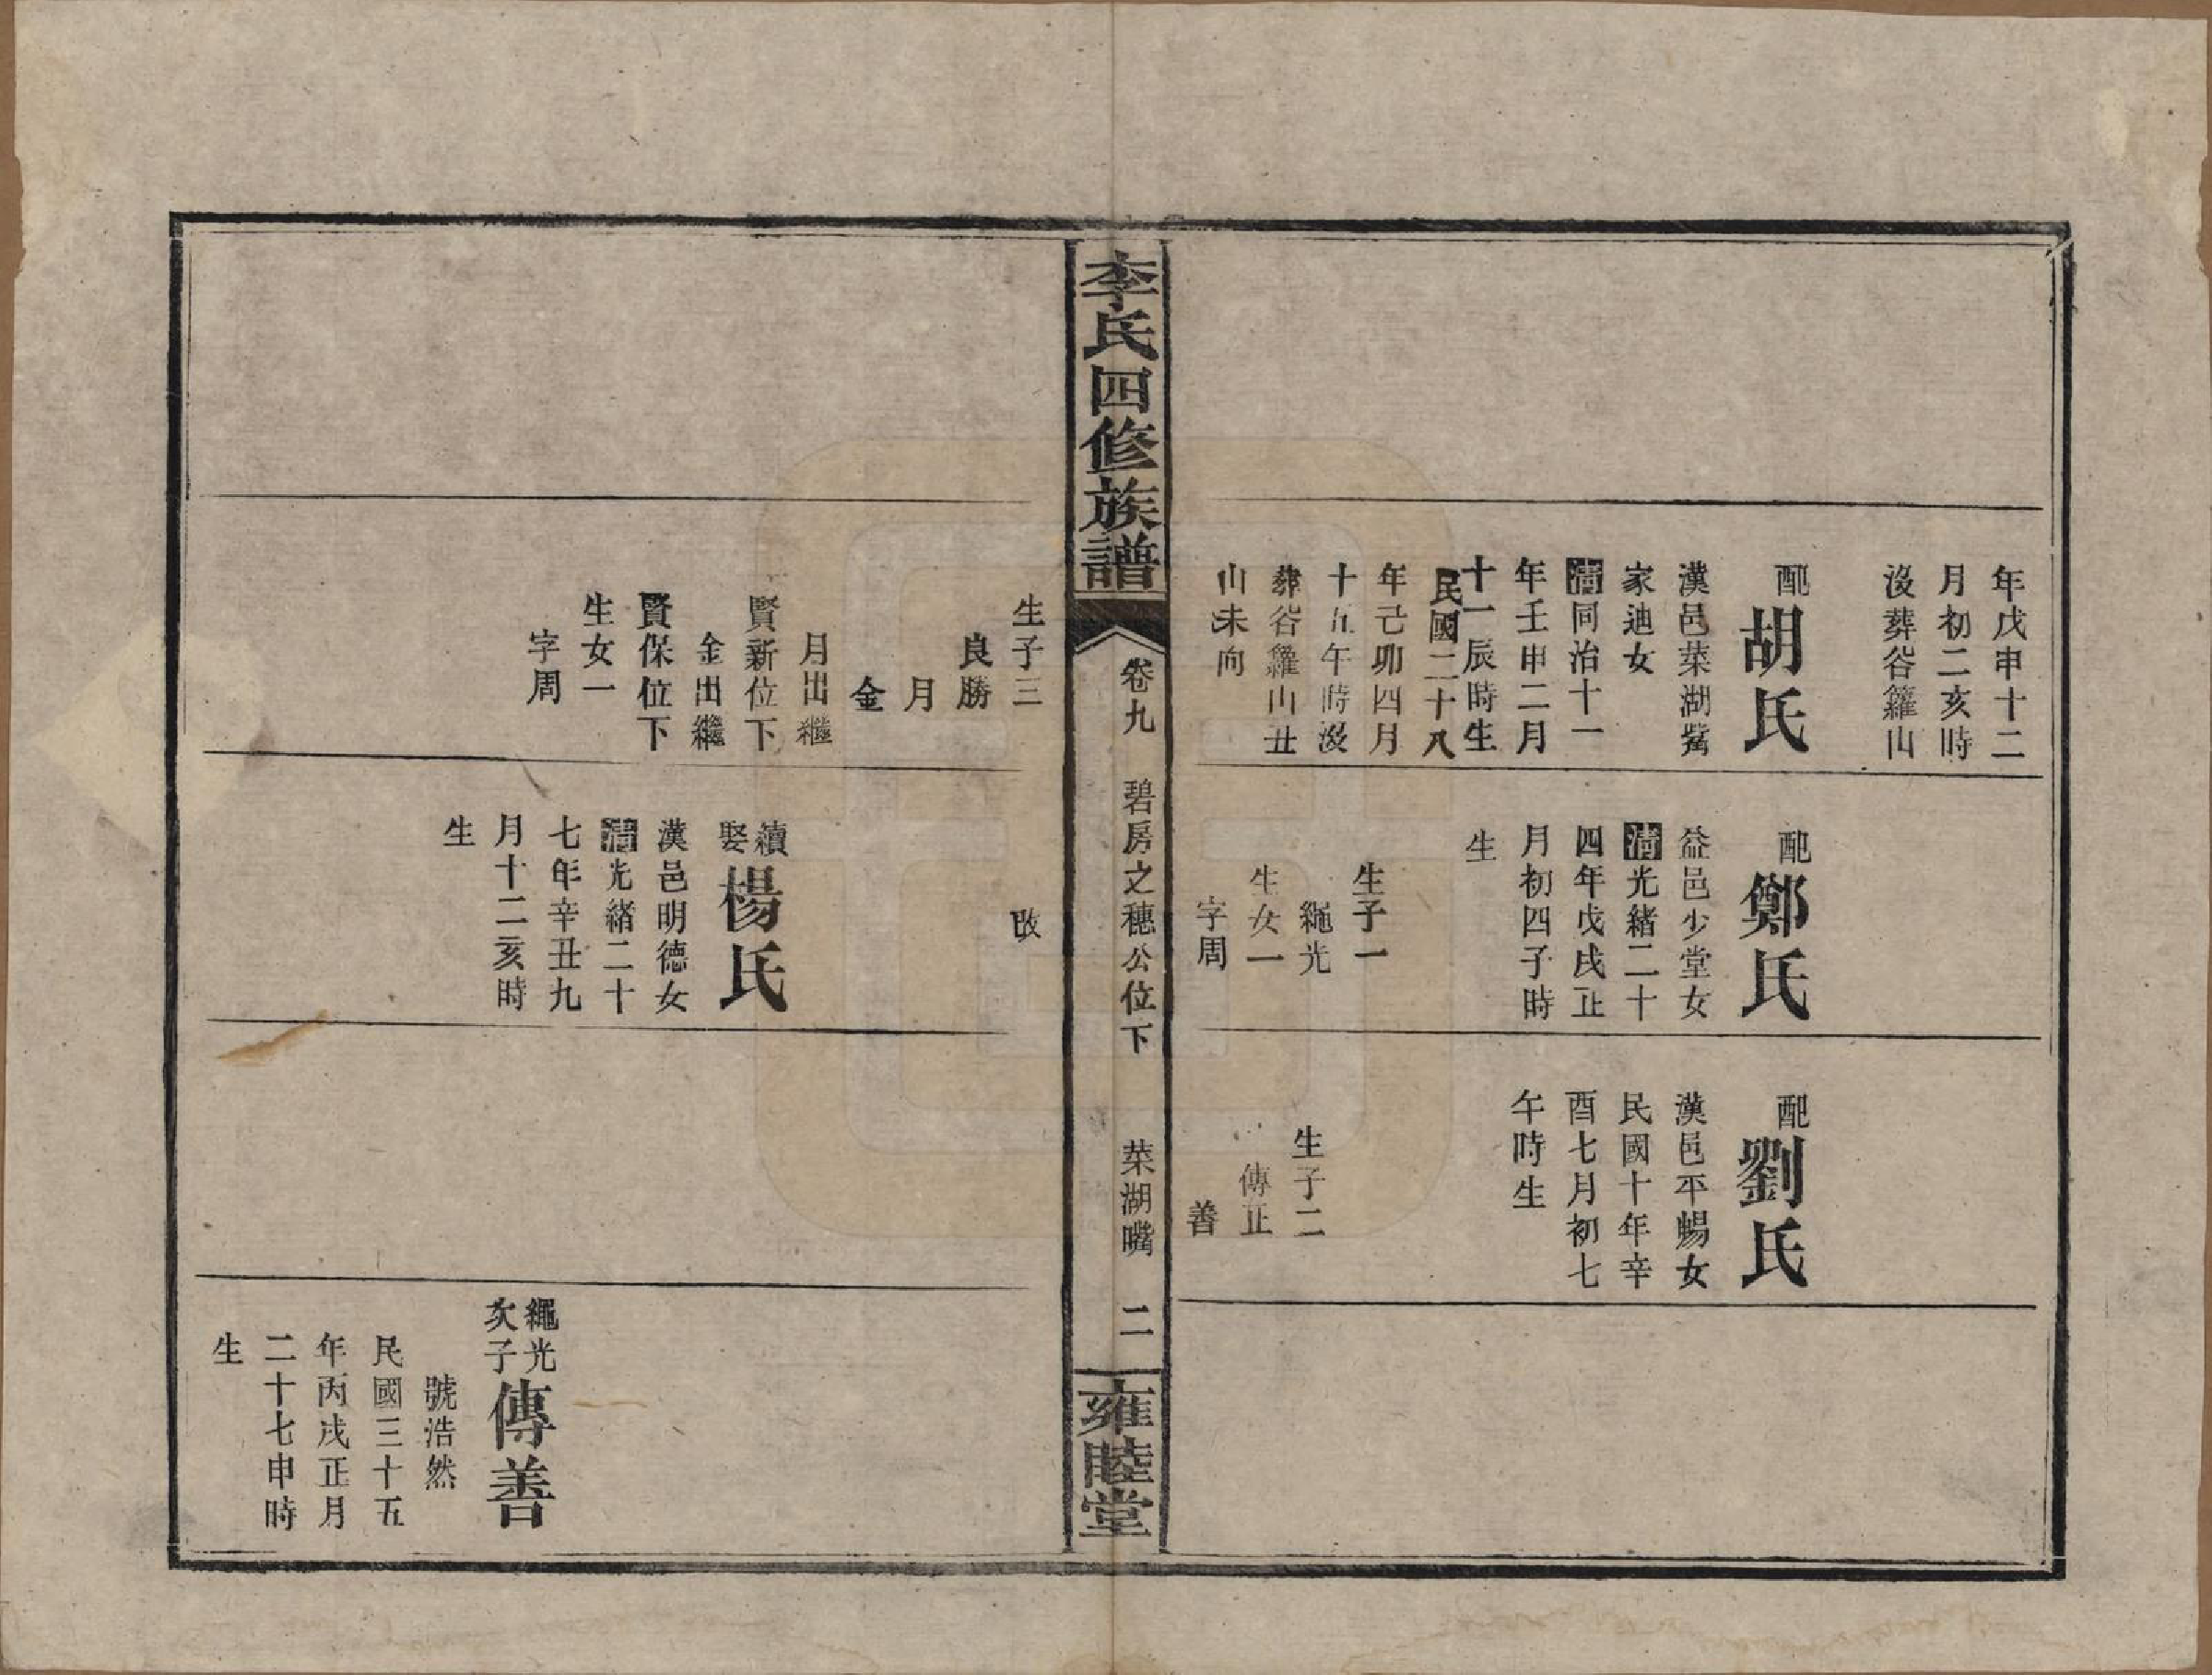 年戊申十二
月初二亥時
沒葬谷籮山
配
胡氏
漢邑菜湖觜
家迪女
清同治十一
年壬申二月
十一辰時生
民國二十八
年己卯四月
十五午時沒
葬谷籮山丑
山未向
配
鄭氏
益邑少堂女
清光緒二十
四年戊戌正
月初四子時
生
生子一
繩光
生女一
字周
配
劉氏
漢邑平賜女
民國十年辛
酉七月初七
午時生
生子二
傳正
善
李氏四修族譜
卷九
碧房之穗公位下
菜湖嘴
二
雍睦堂
生子三
良勝
月
金
月出繼
賢新位下
金出繼
賢保位下
生女一
字周
改
續娶
楊氏
漢邑明德女
清光緒二十
七年辛丑九
月十二亥時
生
繩光
次子
傳善
號浩然
民國三十五
年丙戌正月
二十七申時
生